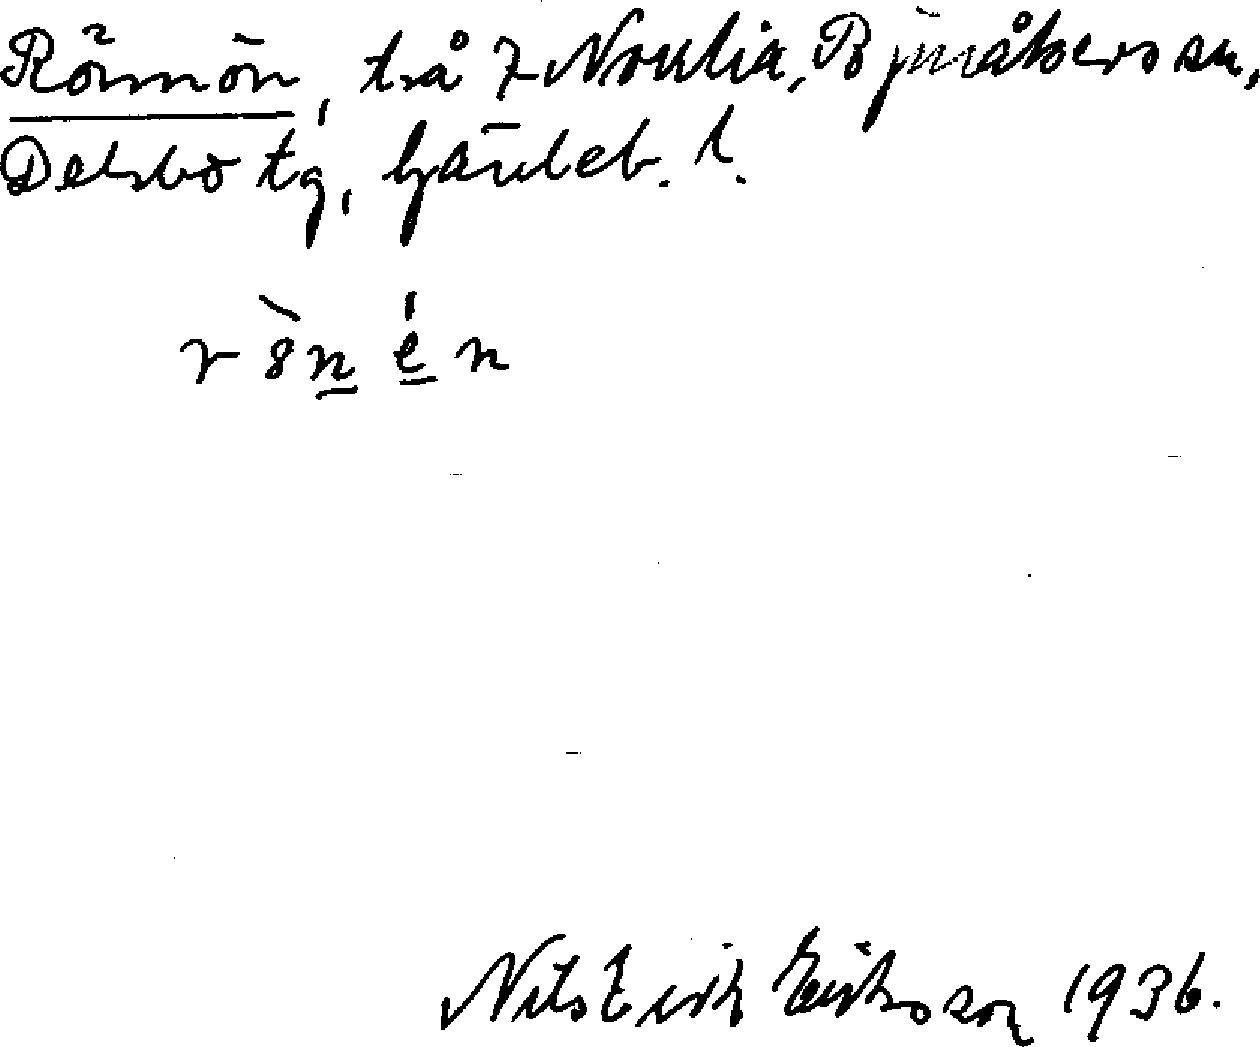 Rönnön, trå 7 Norrlia, Bjuråkers sn,
Delsbo tg, Gävleb. l.
r ò n é n
Nils Erik Eriksson 1936.